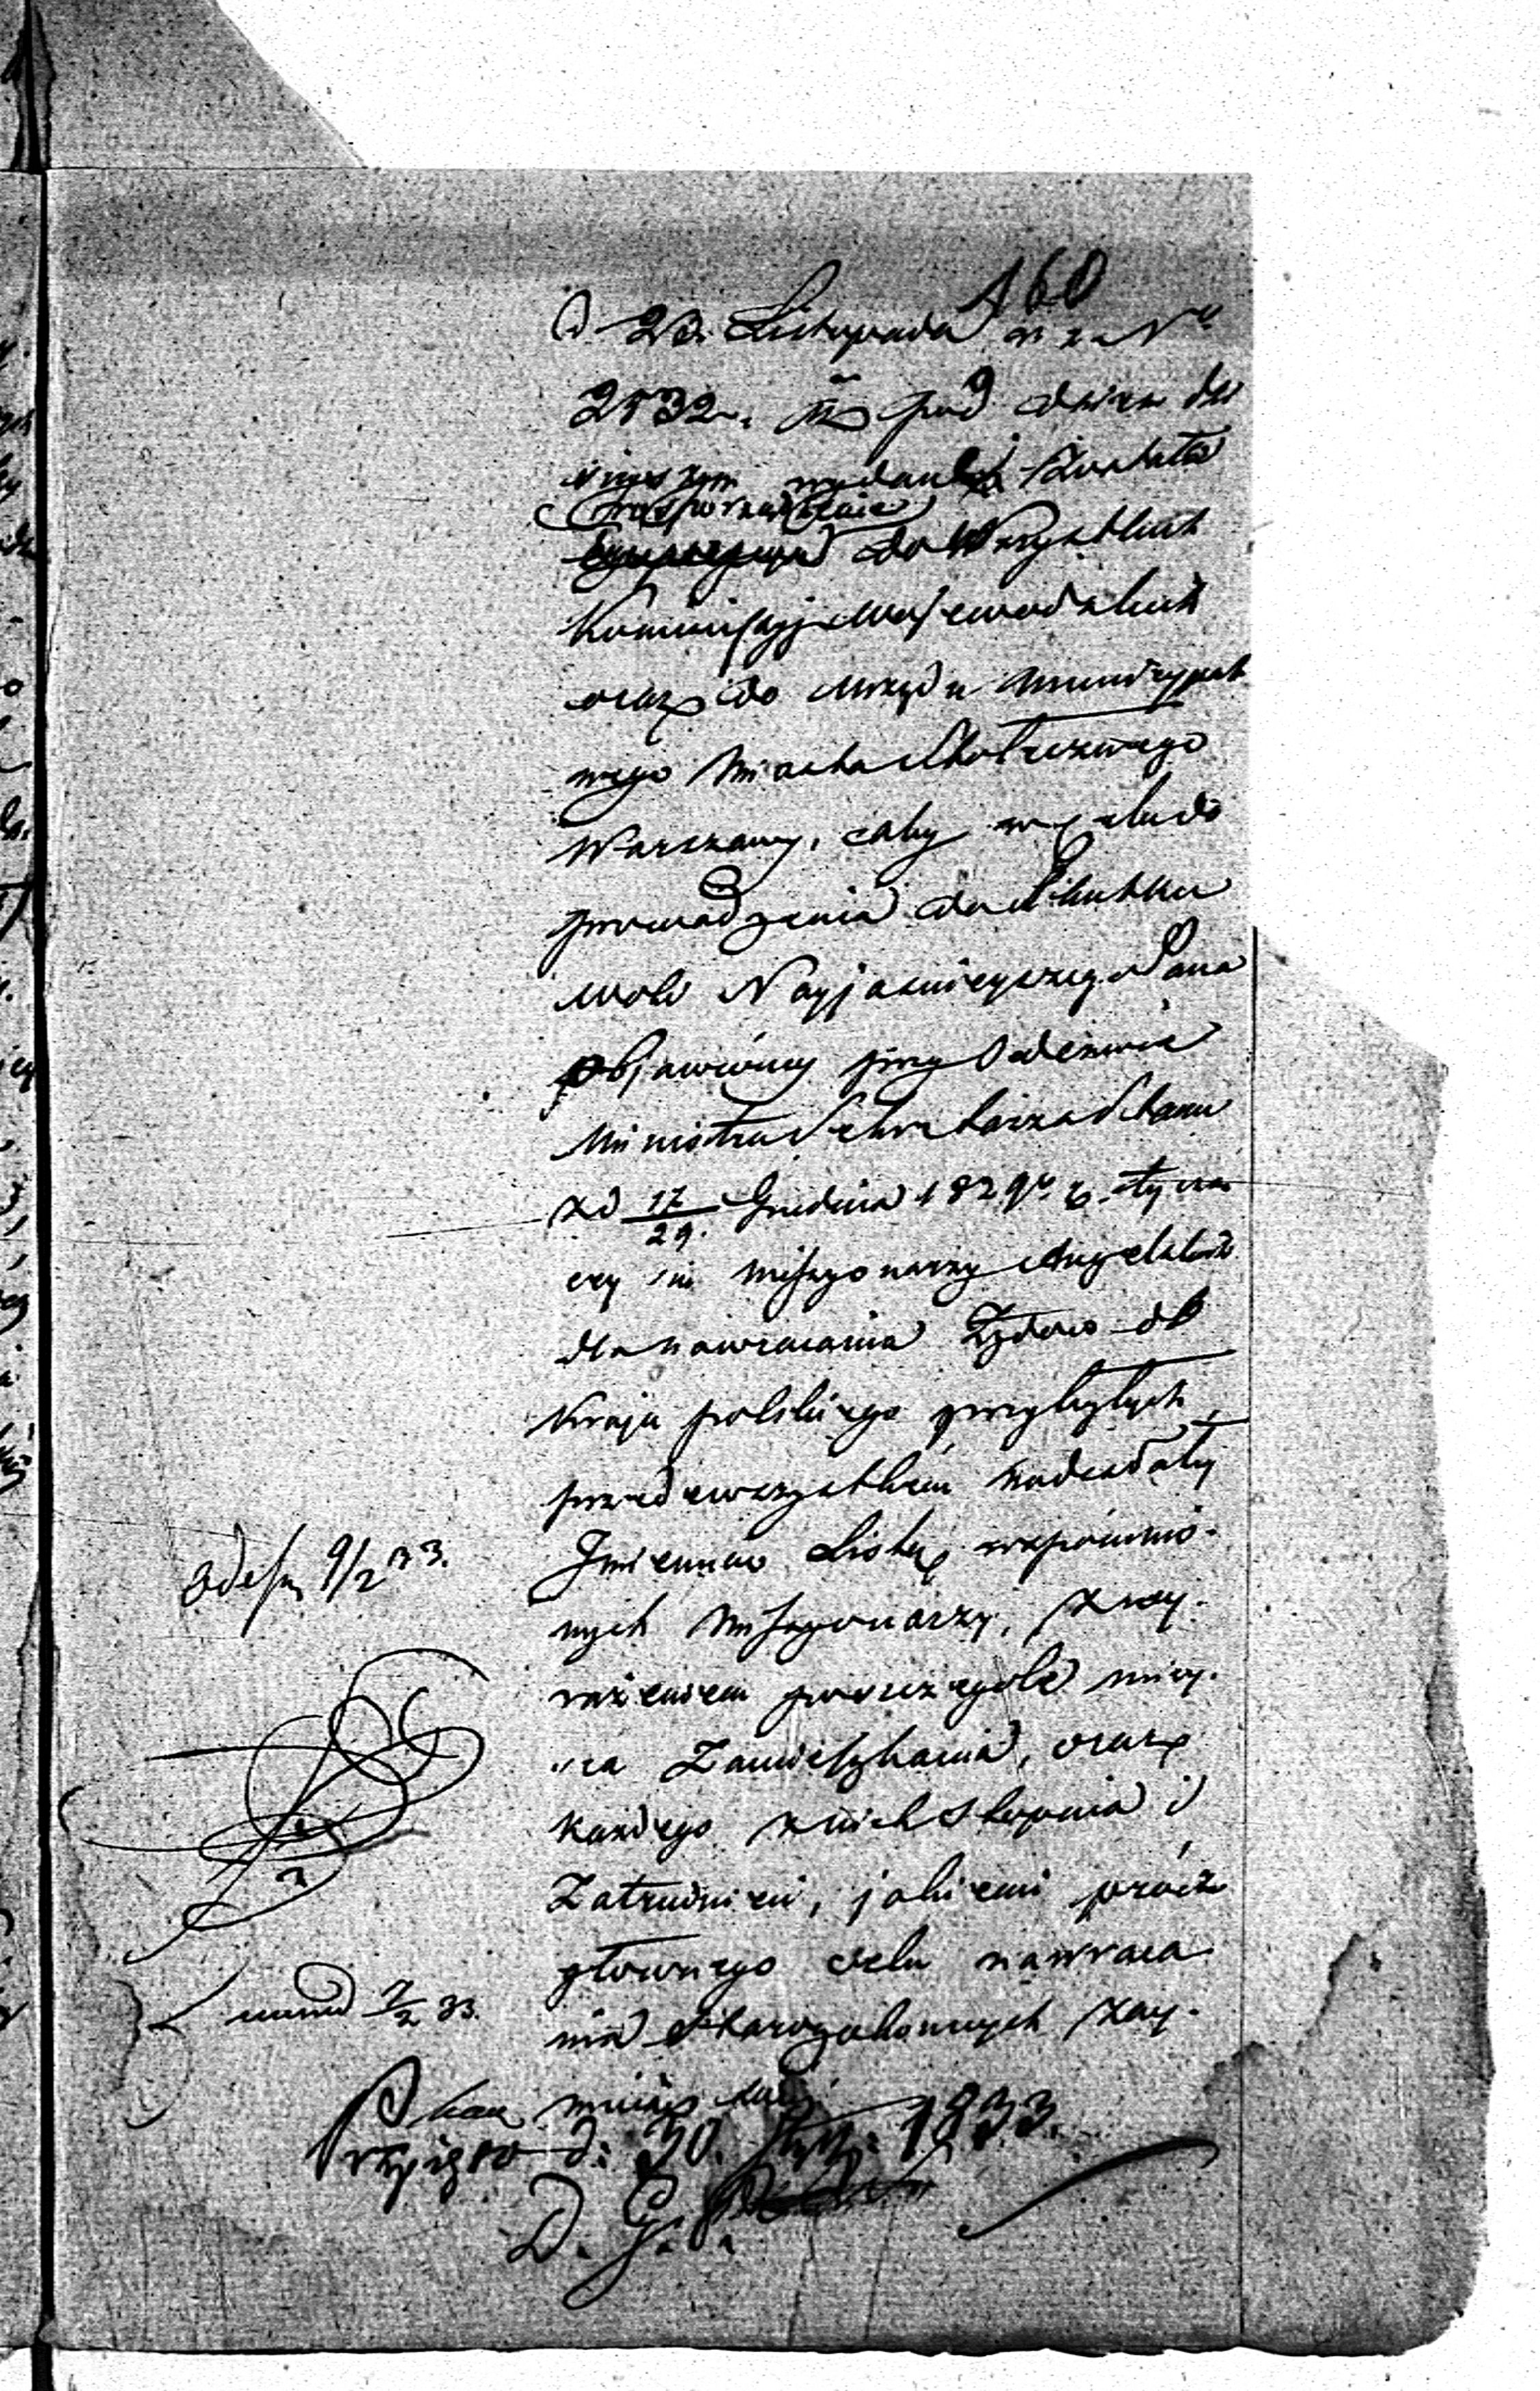 160
d. 28. Listopada r. z. N°
2532. iż pod dniem dzi
sieyszym wydane zostało
rozporządzenie
do Wszystkich
Kommissyj Woiewodzkich
oraz do Urzędu Municypal
nego Miasta Stołecznego
Warszawy, aby w celu do
prowadzenia do skutku
woli Nayjaśnieyszego Pana
objawioney przy Odezwie
Ministra Sekretarza Stanu
z d 17/29. Grudnia 1829 r. tycz
cey się Missyonarzy Angielskich
dla nawracania Żydów do
Kraju polskiego przybyłych,
przedewszystkiem nadesłały
Jmienną Listę wspomnio-
nych Missyonarzy, z wy-
rażeniem poszczegole miey-
sca Zamieszkania, oraz
każdego z nich stopnia i
Zatrudnień, jakiemi prócz
głównego celu nawraca
nia Starozakonnych zay-
muią się
odesz 9/2 33.
7/2 33.
Przyięto d: 30. Stycz: 1833.
D. G.